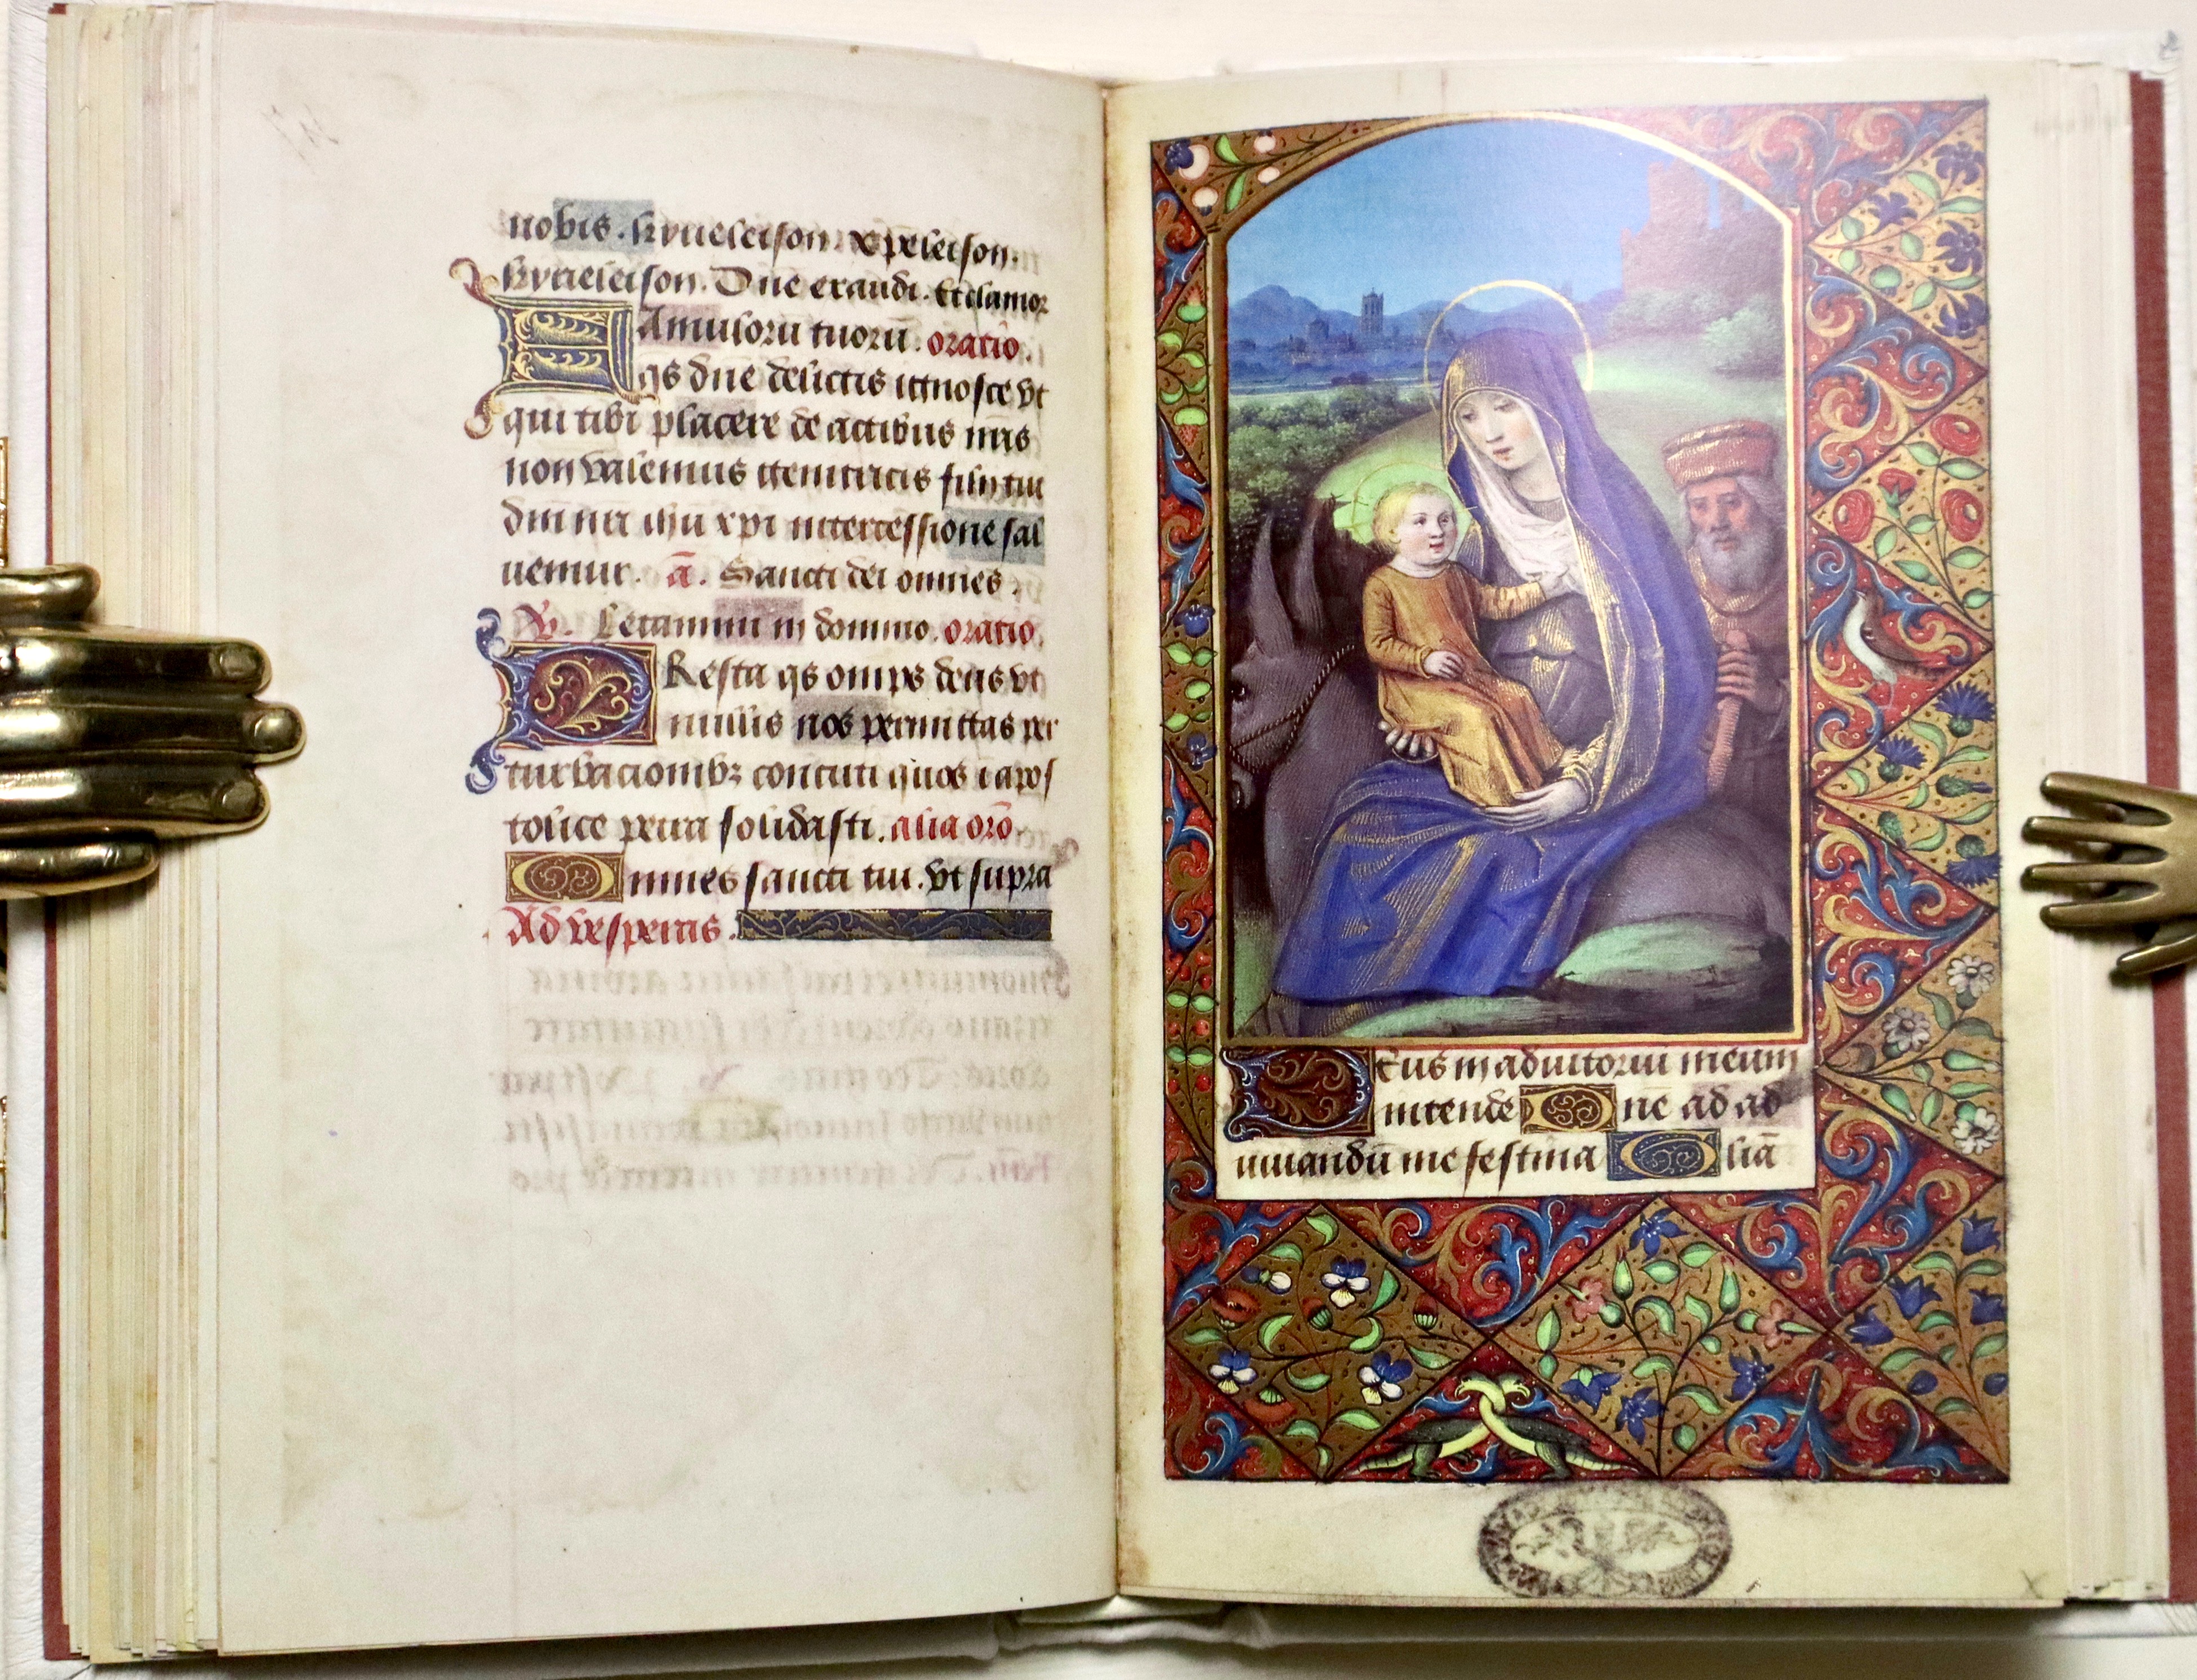 nobis. kyrieleison. xpeleison.
kyrieleison. Dne exaudi. Et clamor
FAmuloru tuoru. oratio.
qs dne delictis ignosce vt
qui tibi placere de actibus nris
non valemus genitricis filij tui
dni nri ihu xpi intercessione sal
uemur. a. Sancti dei omnes.
V. Letamini in domino. oratio.
PResta qs omps deus vt
nullis nos permittas per
turbacionibz concuti quos i apos
tolice petra solidasti. alia oro.
Omnes sancti tui. vt supra
Ad vesperas.
Deus in adiutoriu meum
intende Dne ad ad
iuuandu me festina Glia